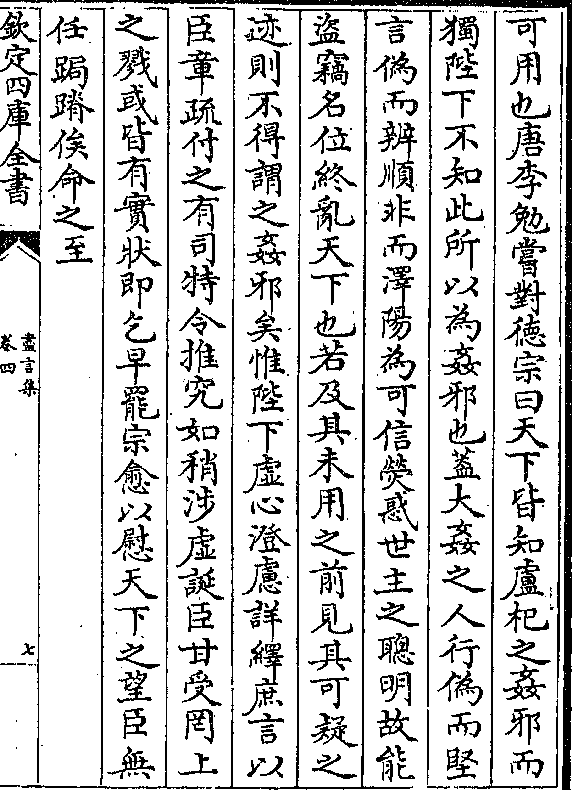 可用也唐李勉嘗對德宗曰天下皆知盧杞之姦邪而
獨陛下不知此所以為姦邪也蓋大姦之人行偽而堅
言偽而辨順非而澤陽為可信熒惑世主之聰明故能
盜竊名位終亂天下也若及其未用之前見其可疑之
迹則不得謂之姦邪矣惟陛下虛心澄慮詳繹庶言以
臣章疏付之有司特令推究如稍涉虛誕臣甘受罔上
之戮或皆有實狀即乞早罷宗愈以慰天下之望臣無
任跼蹐俟命之至
欽定四庫全書
盡言集
卷四
七